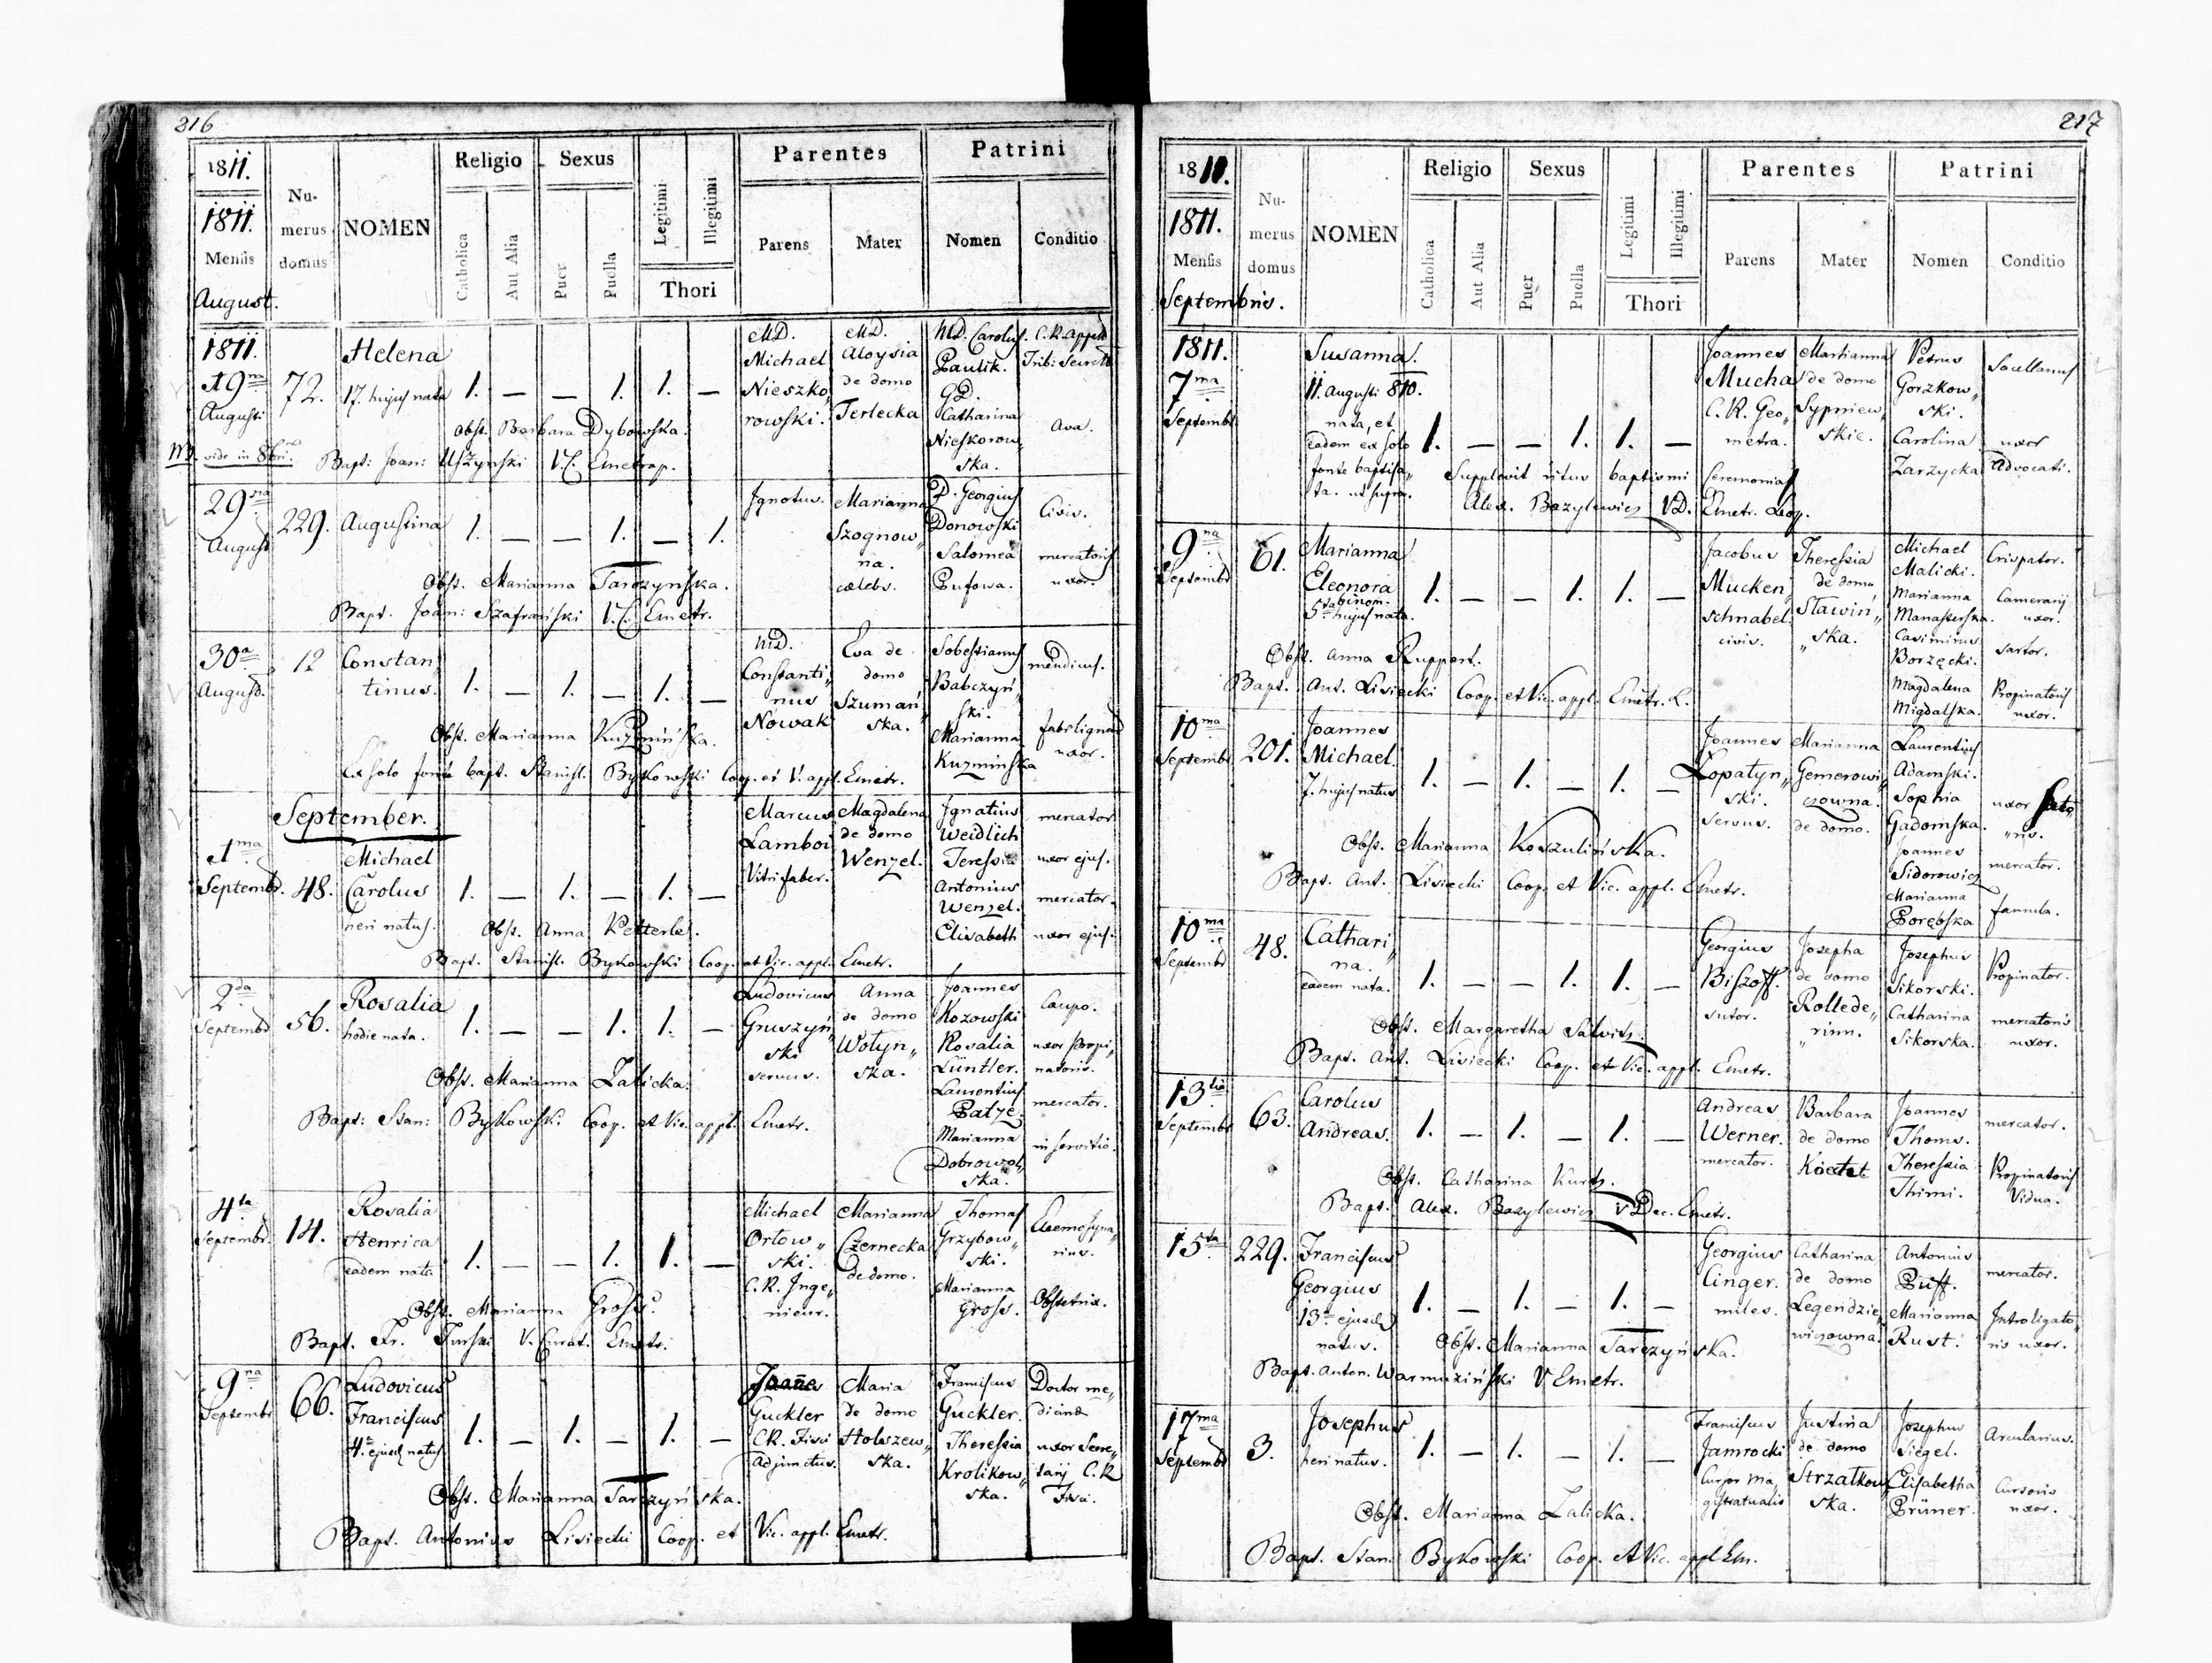 216
1811.
1811.
Mensis
August.
Numerus domus
NOMEN
Religio
Catholica
Aut Alia
Sexus
Puer
Puella
Legitimi
Illegitimi
Thori
Parentes
Parens
Mater
Patrini
Nomen
Conditio
1811.
19na
Augusti
vide in 8bri
72.
Helena
17. hujus nata
1. — — 1. 1. —
MD.
Michael
Nieszko„
rowski.
MD.
Aloysia
de domo
Terlecka
MD. Carolus
Paulik.
GD.
Catharina
Nieskorow„
ska.
C. R. Appell
Ava.
Obst. Barbara Dybowska.
Bapt: Joan: Uszynski V. C. Emetrop.
29na
August
229.
Augustina
1. — — 1. — 1.
Ignotus.
Marianna
Szognow„
na.
cælebs.
D. Georgius
Donowski
Salomea
Pufowa.
Civis.
mercatoris
uxor.
Obst. Marianna Tarczynska.
Bapt. Joan: Szafrański V. C. Emetr.
30a
August.
12
Constan„
tinus.
1. — 1. — 1. —
MD.
Constanti„
nus
Nowak
Eva de
domo
Szumań„
ska.
Sobestianus
Babczyń„
ski.
Marianna
Kuzminska
mendicus.
fabri lignarii
uxor.
Obst. Marianna Kuzminska.
Ex solo fonte bapt. Stanisl. Bykowski Coop. et V. appl. Emetr.
September.
1ma
Septembr.
48.
Michael
Carolus
heri natus.
1. — 1. — 1. —
Marcus
Lamboi
Vitrifaber.
Magdalena
de domo
Wenzel.
Ignatius
Weidlich
Teressia
Antonius
Wenzel.
Elisabeth
mercator
uxor ejus.
mercator.
uxor ejus.
Obst. Anna Ketterle.
Bapt. Stanisl. Bykowski Coop. et Vic. appl. Emetr.
2da
Septembr
56.
Rosalia
hodie nata.
1. — — 1. 1. —
Ludovicus
Gruszyń„
ski
servus.
Anna
de domo
Wołyn„
ska.
Joannes
Kozowski
Rosalia
Lüntler.
Laurentius
Patze.
Marianna
Dobrowol„
ska.
Caupo.
uxor Propi„
natoris.
mercator.
in servitio.
Obst. Marianna Zalicka.
Bapt: Stan: Bykowski Coop. et Vic. appl. Emetr.
4ta
Septembr.
14.
Rosalia
Henrica
eadem nata
1. — — 1. 1. —
Michael
Orłow„
ski.
C. R. Inge„
nieur.
Marianna
Czernecka
de domo.
Thomas
Grzybow„
ski.
Marianna
Gross.
Eleemosyna„
rius.
Obstetrix.
Obst. Marianna Gross.
Bapt. Fr. Turski V. Curat. Emetr.
9na
Septembr
66.
Ludovicus
Franciscus
4a ejusd natus
1. — 1. — 1. —
Joannes
Guckler
C.R. Fisci
Adjunctus.
Maria
de domo
Holszew„
ska.
Franciscus
Guckler.
Theressia
Krolikow„
ska.
Doctor me„
dicinæ
uxor Secre„
tarij C. R.
Fisci.
Obst. Marianna Tarczyńska.
Bapt. Antonius Lisiecki Coop. et Vic. appl. Emetr.
217
1811.
1811.
Mensis
Septembris.
Numerus domus
NOMEN
Religio
Catholica
Aut Alia
Sexus
Puer
Puella
Legitimi
Illegitimi
Thori
Parentes
Parens
Mater
Patrini
Nomen
Conditio
1811.
7ma
Septembr
Susanna.
11. Augusti 810.
nata, et
eadem ex solo
fonte baptisa„
ta. ut supra.
1. — — 1. 1. —
Joannes
Mucha
C. R. Geo„
metra.
Marianna
de domo
Sypniew„
skie.
Petrus
Gorzkow„
ski.
Carolina
Zarzycka
Sacellanus
uxor
Advocati.
Supplevit ritus baptismi Ceremonias
Alex. Bazylewicz VD. Emetr. Leop.
9na
Septembr
61.
Marianna
Eleonora
binom.
5ta hujus nata.
1. — — 1. 1. —
Jacobus
Mucken
schnabel.
civis.
Theressia
de domo
Sławiń„
ska.
Michael
Malicki.
Marianna
Manasterska.
Casimirus
Borzęcki.
Magdalena
Migdalska.
Crispator.
Camerarij
uxor.
Sartor.
Propinatoris
uxor.
Obst. Anna Ruppert.
Bapt. Ant. Lisiecki Coop. et Vic. appl. Emetr. L.
10ma
Septembr
201.
Joannes
Michael.
7. hujus natus
1. — 1. — 1. —
Joannes
Łopatyn„
ski.
servus.
Marianna
Gemerowi„
czowna.
de domo.
Laurentius
Adamski.
Sophia
Gadomska.
Joannes
Sidorowicz
Marianna
Porębska
uxor Sato„
ris.
mercator.
famula.
Obst. Marianna Koszulińska.
Bapt. Ant. Lisiecki Coop. et Vic. appl. Emetr.
10ma
Septembr
48.
Cathari„
na.
eadem nata.
1. — — 1. 1. —
Georgius
Biszoff.
sutor.
Josepha
de domo
Rollede„
rinn.
Josephus
Sikorski.
Catharina
Sikorska.
Propinator.
mercatoris
uxor.
Obst. Margaretha Salvitz.
Bapt. Ant. Lisiecki Coop. et Vic. appl. Emetr.
13tia
Septembr
63.
Carolus
Andreas.
1. — 1. — 1. —
Andreas
Werner.
mercator.
Barbara
de domo
Joannes
Thoms.
Theressia
Thimi.
mercator.
Propinatoris
Vidua.
Obst. Catharina Kurtz.
Bapt. Alex. Bazylewicz V Dec. Emetr.
15ta
229.
Franciscus
Georgius
13a ejusd
natus.
1. — 1. — 1. —
Georgius
Cinger.
miles.
Catharina
de domo
Legendzie„
wiczowna.
Antonius
Puff.
Marianna
Rust.
mercator.
Introligato„
ris uxor.
Obst. Marianna Tarczyńska.
Bapt. Anton. Warmuziński V Emetr.
17ma
Septembr
3.
Josephus
heri natus.
1. — 1. — 1. —
Franciscus
Jamrocki
Cursor ma„
gistratualis
Justina
de domo
Strzałkow„
ska.
Josephus
Siegel.
Elisabetha
Prüner.
Arcularius.
Cursoris
uxor.
Obst. Marianna Zalicka.
Bapt. Stan. Bykowski Coop. et Vic. appl Em.